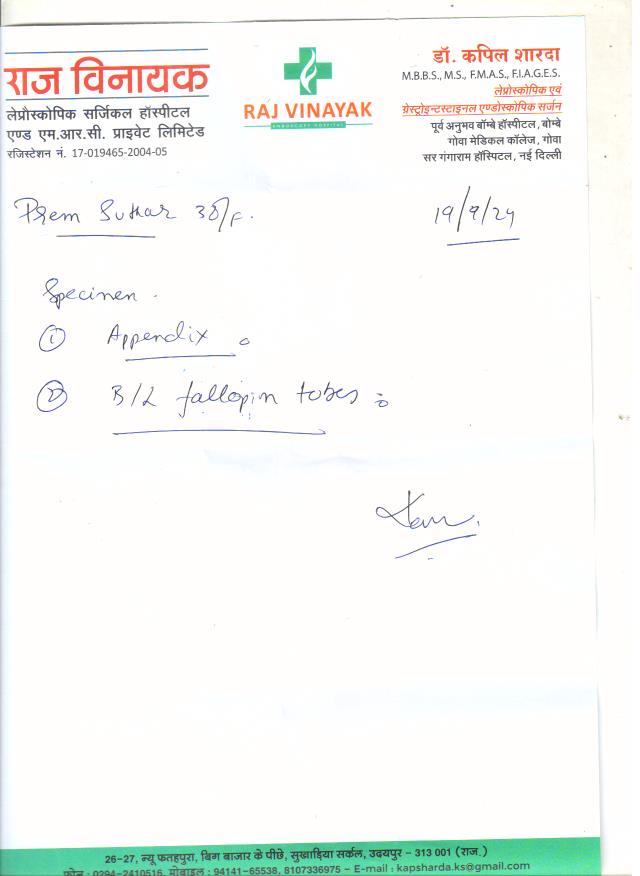 राज विनायक
लेप्रौस्कोपिक सर्जिकल हॉस्पीटल
एण्ड एम.आर.सी. प्राइवेट लिमिटेड
रजिस्टेशन नं. 17-019465-2004-05
RAJ VINAYAK
ENDOSCOPY HOSPITAL
डॉ. कपिल शारदा
M.B.B.S., M.S., F.M.A.S., F.I.A.G.E.S.
लेप्रोस्कोपिक एवं
ग्रेस्ट्रोइन्टस्टाइनल एण्डोस्कोपिक सर्जन
पूर्व अनुभव बॉम्बे हॉस्पीटल, बोम्बे
गोवा मेडिकल कॉलेज, गोवा
सर गंगाराम हॉस्पिटल, नई दिल्ली
Prem Suthar 38/F.
19/9/24
Specimen.
① Appendix
② B/L fallopin tubes
26-27, न्यू फतहपुरा, बिग बाजार के पीछे, सुखाड़िया सर्कल, उदयपुर - 313 001 (राज.)
फोन : 0294-2410516, मोबाइल : 94141-65538, 8107336975 - E-mail : kapsharda.ks@gmail.com